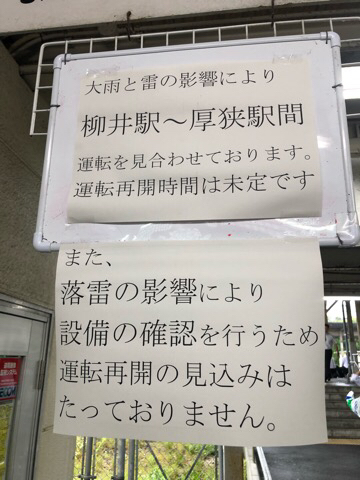 大雨と雷の影響により
柳井駅～厚狭駅間
運転を見合わせております。
運転再開時間は未定です
また、
落雷の影響により
設備の確認を行うため
運転再開の見込みは
たっておりません。